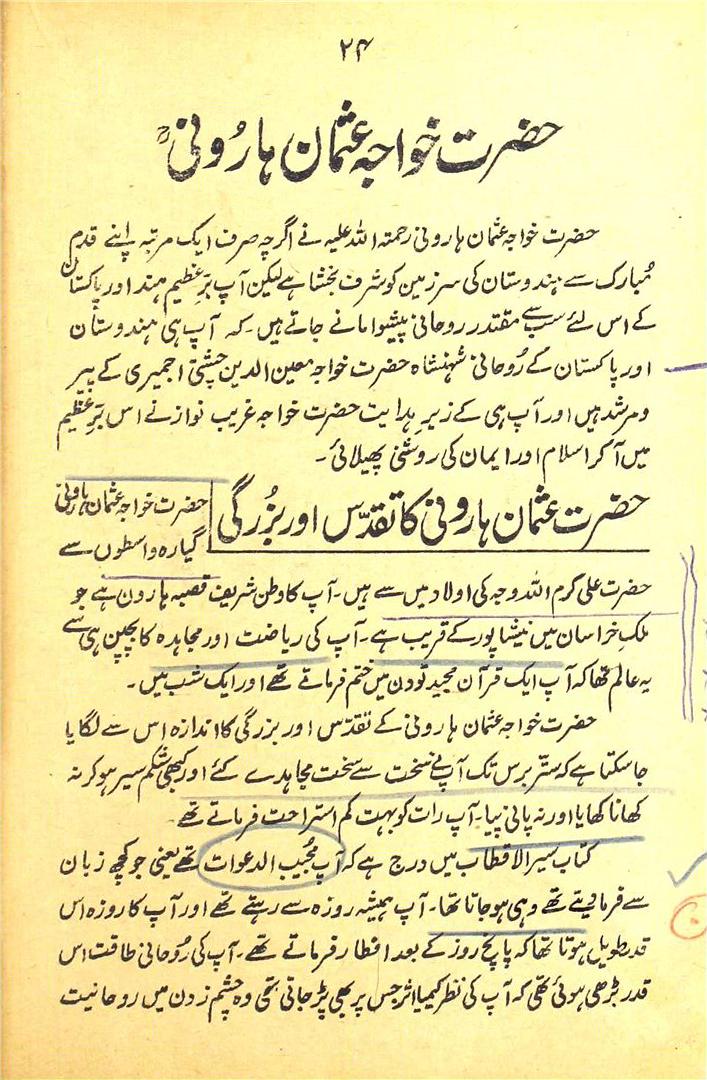 ۲۴
حضرت خواجہ عثمان ہارُونیؒ
حضرت خواجہ عثمان ہارونی رحمتہ اللہ علیہ نے اگرچہ صرف ایک مرتبہ اپنے قدم
مُبارک سے ہندوستان کی سرزمین کو شرف بخشا ہے لیکن آپ برِّعظیم ہند اور پاکستان
کے اس لئے سب سے مقتدر روحانی پیشوا مانے جاتے ہیں۔ کہ آپ ہی ہندوستان
اور پاکستان کے رُوحانی شہنشاہ حضرت خواجہ معین الدین چشتی اجمیری کے پیر
و مرشد ہیں اور آپ ہی کے زیرِ ہدایت حضرت خواجہ غریب نواز نے اس برِّعظیم
میں آکر اسلام اور ایمان کی روشنی پھیلائی۔
حضرت عثمان ہارونی کا تقدّس اور بزُرگی
حضرت خواجہ عثمان ہارونی
گیارہ واسطوں سے
حضرت علی کرم اللہ وجہ کی اولاد میں سے ہیں۔ آپ کا وطن شریف قصبہ ہارون ہے جو
ملک خراسان میں نیشاپور کے قریب ہے۔ آپ کی ریاضت اور مجاہدہ کا بچپن ہی سے
یہ عالم تھا کہ آپ ایک قرآن مجید تو دن میں ختم فرماتے تھے اور ایک شب میں۔
حضرت خواجہ عثمان ہارونی کے تقدّس اور بزرگی کا اندازہ اس سے لگایا
جا سکتا ہے کہ ستّر برس تک آپ نے سخت سے سخت مجاہدے کئے اور کبھی شکم سیر ہو کر نہ
کھانا کھایا اور نہ پانی پیا۔ آپ رات کو بہت کم استراحت فرماتے تھے۔
کتاب سیرالاقطاب میں درج ہے کہ آپ مُجیب الدعوات تھے یعنی جو کچھ زبان
سے فرما دیتے تھے وہی ہو جاتا تھا۔ آپ ہمیشہ روزہ سے رہتے تھے اور آپ کا روزہ اس
قدر طویل ہوتا تھا کہ پانچ روز کے بعد افطار فرماتے تھے۔ آپ کی رُوحانی طاقت اس
قدر بڑھی ہوئی تھی کہ آپ کی نظر کیمیا اثر جس پر بھی پڑ جاتی تھی وہ چشم زدن میں روحانیت